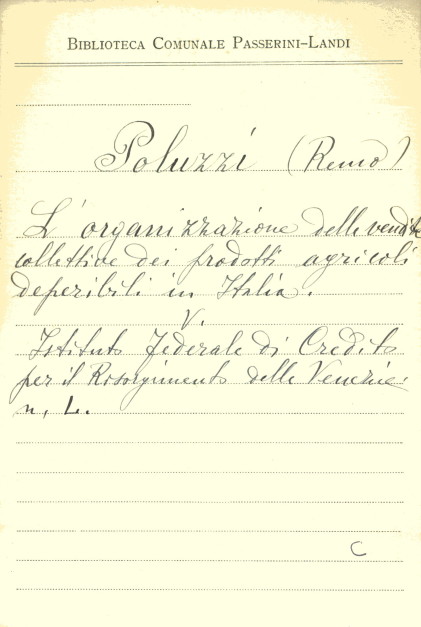 BIBLIOTECA COMUNALE PASSERINI-LANDI
Poluzzi (Remo)
L'organizzazione delle vendite
collettive dei prodotti agricoli
deperibili in Italia.
V.
Istituto Federale di Credito
per il Risorgimento delle Venezie
n. L.
C